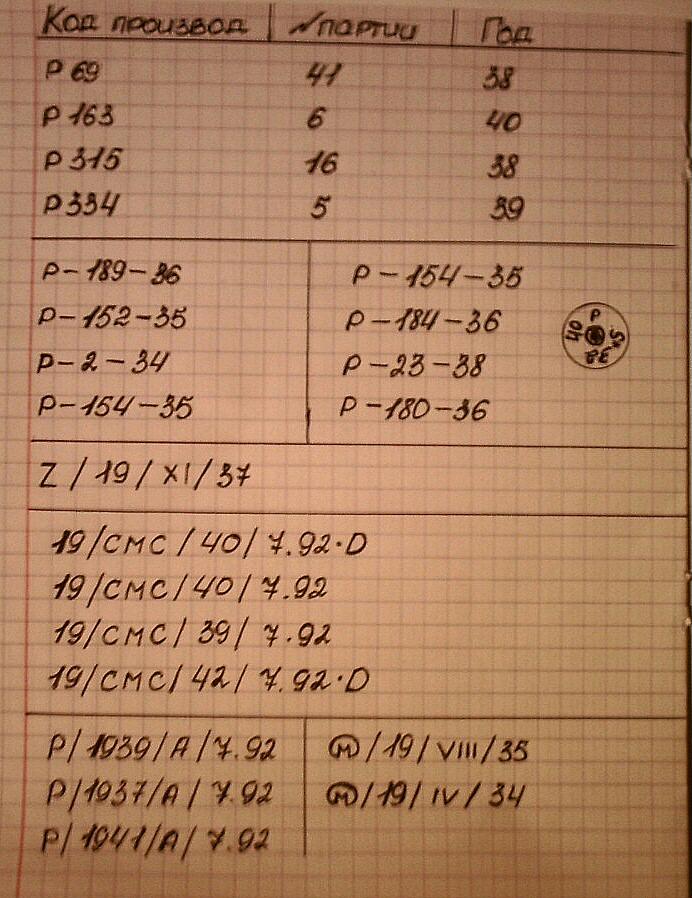 Код производ | № партии | Год
P 69 41 38
P 163 6 40
P 315 16 38
P 334 5 39
P-189-36 P-154-35
P-152-35 P-184-36
P-2-34 P-23-38
P-154-35 P-180-36
P
40
S*
38
Z / 19 / XI / 37
19/CMC/40/7.92·D
19/CMC/40/7.92
19/CMC/39/7.92
19/CMC/42/7.92·D
P/1939/A/7.92 M/19/VIII/35
P/1937/A/7.92 M/19/IV/34
P/1941/A/7.92